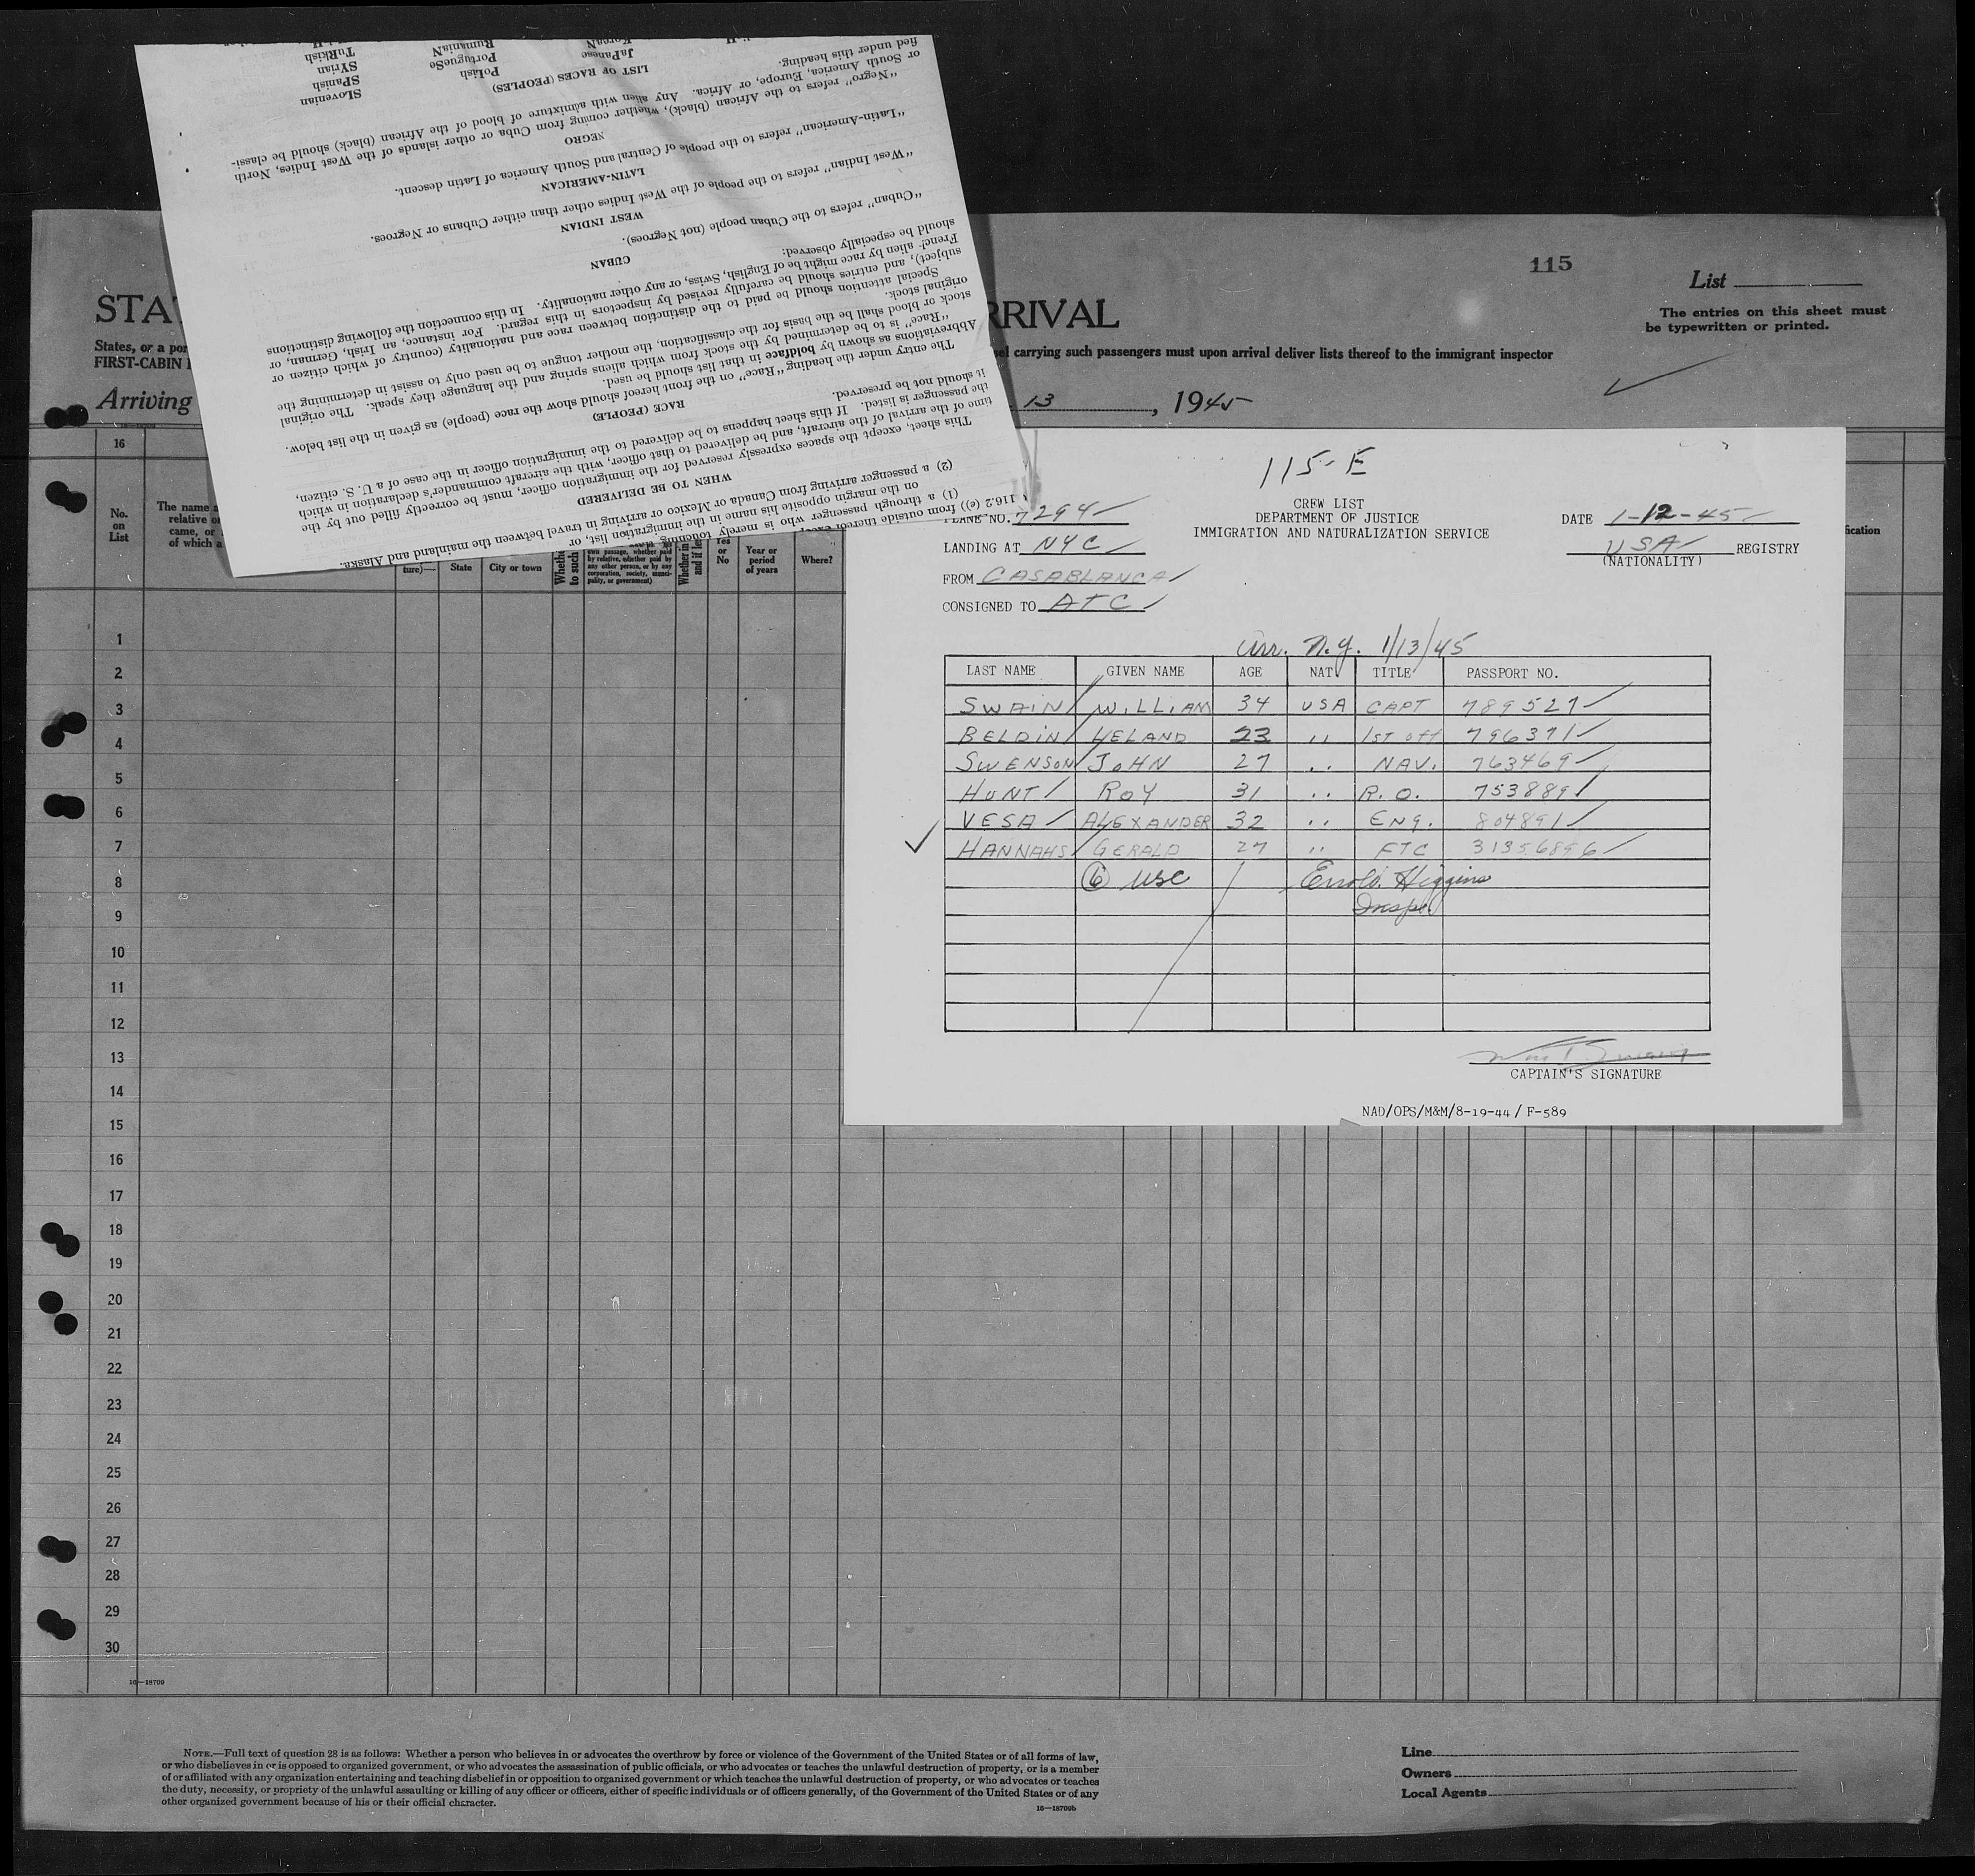 115
List
The entries on this sheet must
be typewritten or printed.
STAT
RRIVAL
States, or a por
sel carrying such passengers must upon arrival deliver lists thereof to the immigrant inspector
FIRST-CABIN
Arriving
13, 1945
16
No.
on
List
The name a
relative o
came, or
of which a
ture)—
State
City or town
Whethe
to such
own passage, whether paid
by relative, whether paid by
any other person, or by any
corporation, society, munici-
pality, or government)
Whether in
and if le
Yes
or
No
Year or
period
of years
Where?
ication
(1) a through passenger who is merely touching
on the margin opposite his name in the immigration list, or
(2) a passenger arriving from Canada or Mexico or arriving in travel between the mainland and Alaska.
WHEN TO BE DELIVERED
This sheet, except the spaces expressly reserved for the immigration officer, must be correctly filled out by the
time of the arrival of the aircraft, and be delivered to that officer, with the aircraft commander's declaration in which
the passenger is listed. If this sheet happens to be delivered to the immigration officer in the case of a U. S. citizen,
it should not be preserved.
RACE (PEOPLE)
The entry under the heading "Race" on the front hereof should show the race (people) as given in the list below.
Abbreviations as shown by boldface in that list should be used.
"Race" is to be determined by the stock from which aliens spring and the language they speak. The original
stock or blood shall be the basis for the classification, the mother tongue to be used only to assist in determining the
original stock.
Special attention should be paid to the distinction between race and nationality (country of which citizen or
subject), and entries should be carefully revised by inspectors in this regard. For instance, an Irish, German, or
French alien by race might be of English, Swiss, or any other nationality. In this connection the following distinctions
should be especially observed:
CUBAN
"Cuban" refers to the Cuban people (not Negroes).
WEST INDIAN
"West Indian" refers to the people of the West Indies other than either Cubans or Negroes.
LATIN-AMERICAN
"Latin-American" refers to the people of Central and South America of Latin descent.
NEGRO
"Negro" refers to the African (black), whether coming from Cuba or other islands of the West Indies, North
or South America, Europe, or Africa. Any alien with admixture of blood of the African (black) should be classi-
fied under this heading.
LIST OF RACES (PEOPLES)
JaPanese
KoreaN
PoLish
PortugueSe
RumaniaN
SLOvenian
SPanish
SYrian
TuRkish
115-E
CREW LIST
DEPARTMENT OF JUSTICE
IMMIGRATION AND NATURALIZATION SERVICE
PLANE NO. 7294
DATE 1-12-45
LANDING AT NYC
USA REGISTRY
(NATIONALITY)
FROM CASABLANCA
CONSIGNED TO ATC
Arr. N.Y. 1/13/45
LAST NAME GIVEN NAME AGE NAT TITLE PASSPORT NO.
SWAIN WILLIAM 34 USA CAPT 789527
BELDIN LELAND 23 " 1ST Off 796371
SWENSON JOHN 27 " NAV. 763469
HUNT ROY 31 " R.O. 753889
VESA ALEXANDER 32 " ENG. 804891
HANNAHS GERALD 27 " FTC 31356896
6 USC
Errol D. Higgins
Inspr.
CAPTAIN'S SIGNATURE
NAD/OPS/M&M/8-19-44 / F-589
1
2
3
4
5
6
7
8
9
10
11
12
13
14
15
16
17
18
19
20
21
22
23
24
25
26
27
28
29
30
16—18709
NOTE.—Full text of question 28 is as follows: Whether a person who believes in or advocates the overthrow by force or violence of the Government of the United States or of all forms of law,
or who disbelieves in or is opposed to organized government, or who advocates the assassination of public officials, or who advocates or teaches the unlawful destruction of property, or is a member
of or affiliated with any organization entertaining and teaching disbelief in or opposition to organized government or which teaches the unlawful destruction of property, or who advocates or teaches
the duty, necessity, or propriety of the unlawful assaulting or killing of any officer or officers, either of specific individuals or of officers generally, of the Government of the United States or of any
other organized government because of his or their official character.
16—18709b
Line
Owners
Local Agents